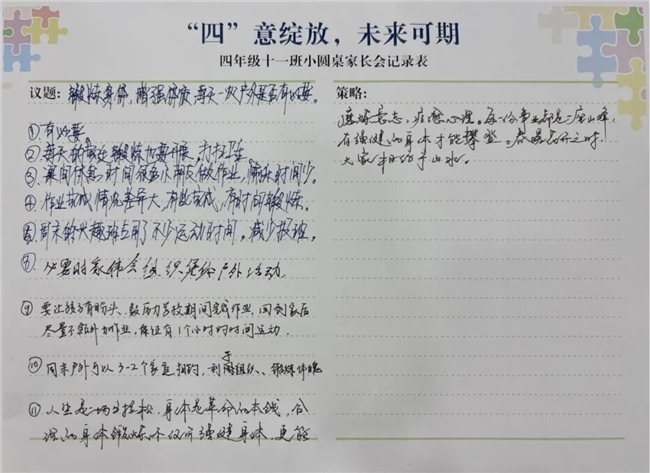 “四”意绽放，未来可期
四年级十一班小圆桌家长会记录表
议题：锻炼身体，增强体质，每天一次户外是否有必要。
①有必要。
②每天的家庭锻炼也要开展，打扫卫生
③课间休息，时间很多小朋友做作业，休息时间少。
④作业完成情况差异大，有些完成，有时间锻炼。
⑤周末的兴趣班占用了不少运动时间，减少报班。
⑧必要时家体会组织集体户外活动
⑨要让孩子有盼头、努力在校期间完成作业，回到家后
尽量不额外加作业，保证有1个小时的时间运动。
⑩周末户外可以3-2个家庭相约，利于组织、锻炼体魄
⑪人生是一场马拉松，身体是革命的本钱，合
理的身体锻炼不仅可强健身体，更能
策略：
磨炼意志，疗愈心理。每一份事业都是一座山峰，
有强健的身体才能攀登。春暖花开之时，
大家相约于山水。